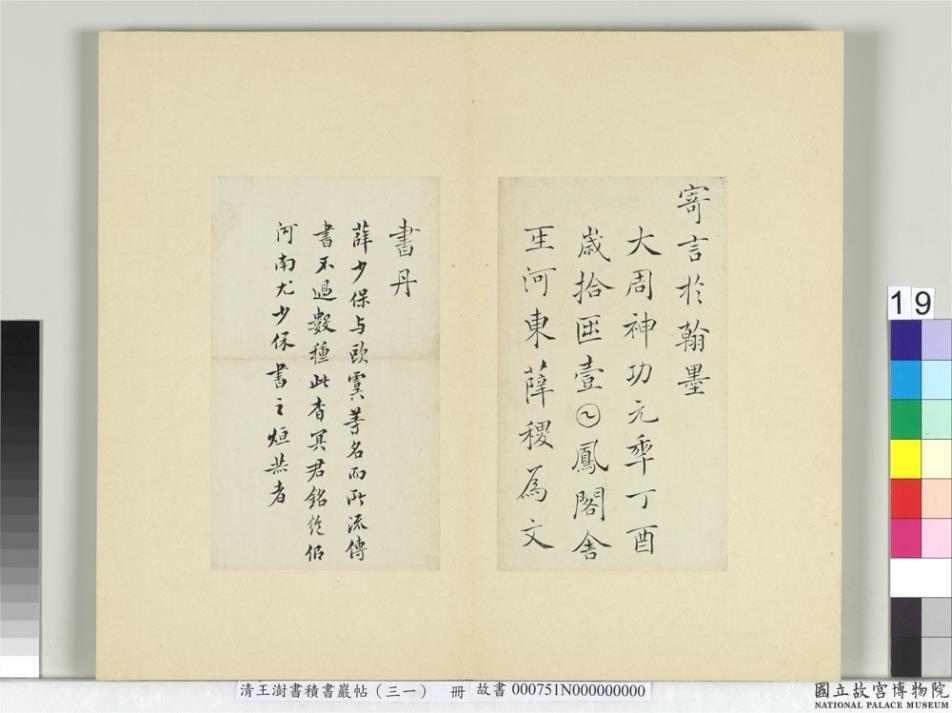 寄言於翰墨
大周神功元𠡦丁酉
歲拾匨壹𡆠鳳閣舍
𤯔河東薛稷為文
書丹
薛少保与歐虞等名而所流傳
書不過數種此杳冥君銘絶佀
河南尤少保書之烜赫者
19
清王澍書積書巖帖（三一） 冊 故書 000751N000000000
國立故宮博物院
NATIONAL PALACE MUSEUM